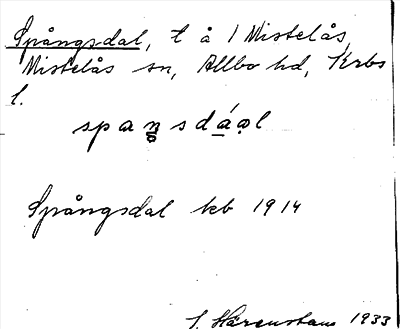 Spångsdal, t å / Mistelås,
Mistelås sn, Allbo hd, Krbs
l.
spaŋsdáal
Spångsdal kb 1914
1933